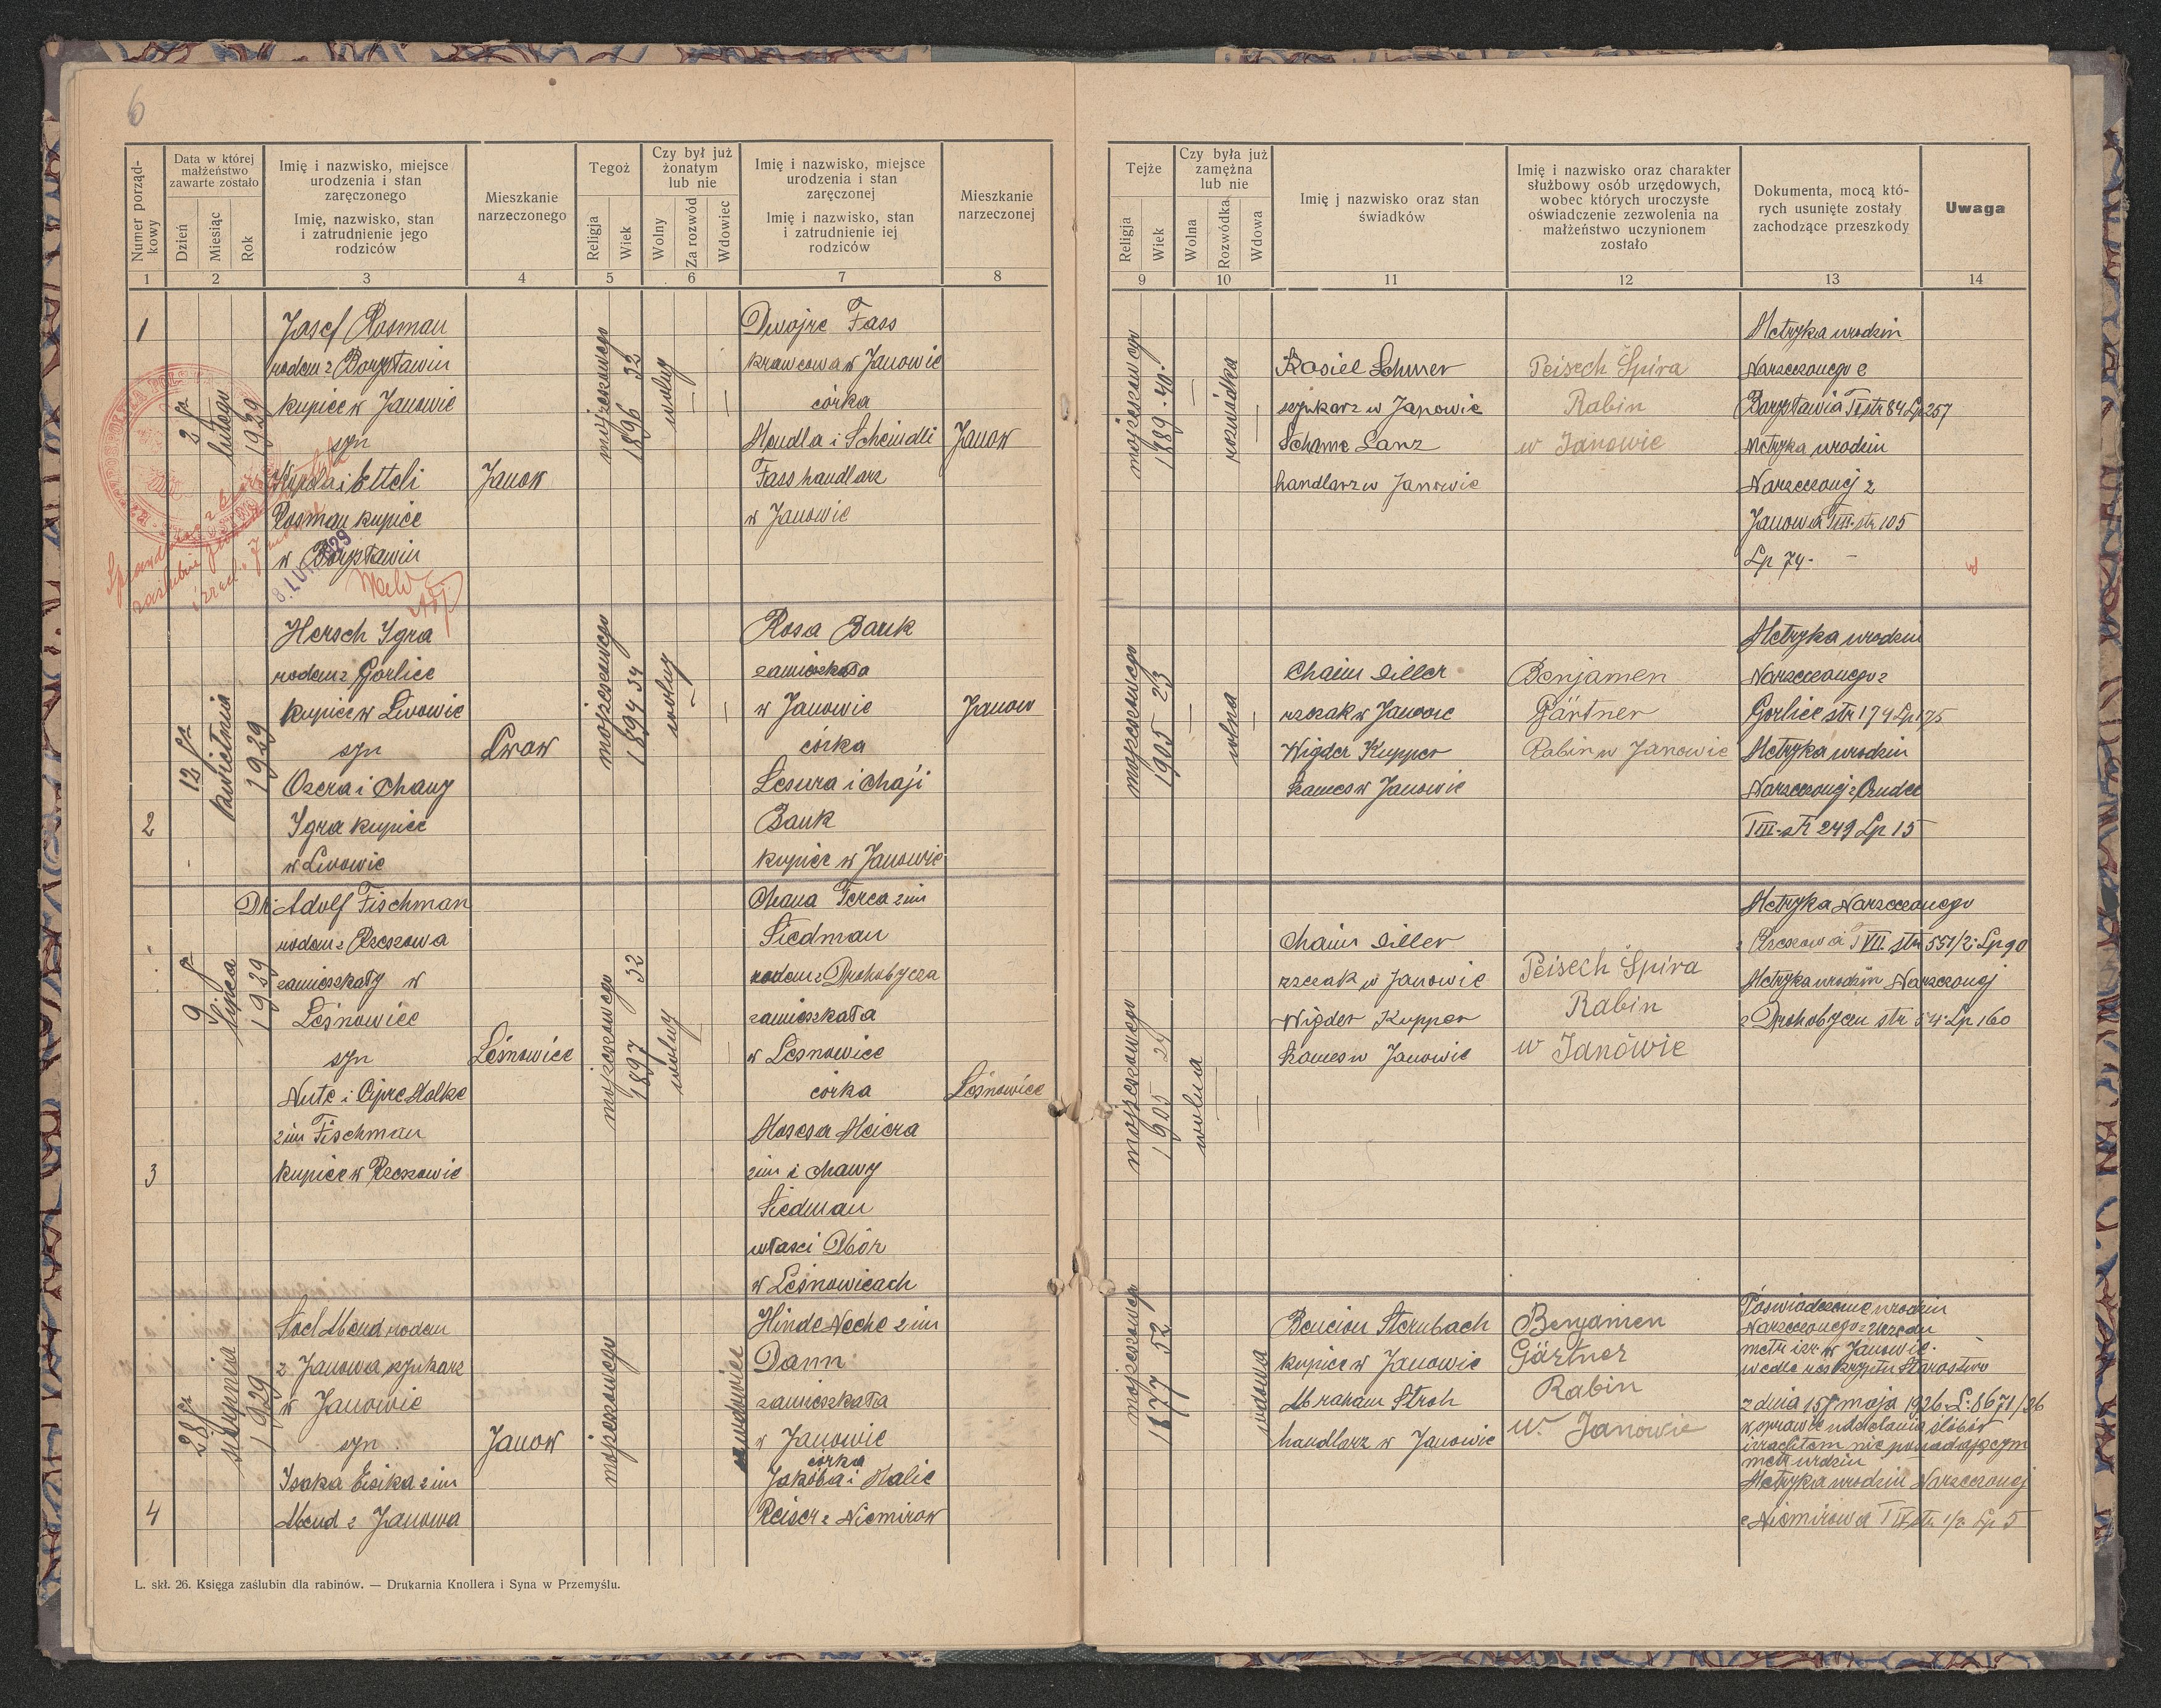 6
Numer porząd-
kowy
Data w której
małżeństwo
zawarte zostało
Dzień
Miesiąc
Rok
Imię i nazwisko, miejsce
urodzenia i stan
zaręczonego
Imię, nazwisko, stan
i zatrudnienie jego
rodziców
Mieszkanie
narzeczonego
Tegoż
Religja
Wiek
Czy był już
żonatym
lub nie
Wolny
Za rozwód
Wdowiec
Imię i nazwisko, miejsce
urodzenia i stan
zaręczonej
Imię i nazwisko, stan
i zatrudnienie iej
rodziców
Mieszkanie
narzeczonej
1 2 3 4 5 6 7 8
Tejże
Religja
Wiek
Czy była już
zamężna
lub nie
Wolna
Rozwódka
Wdowa
Imię j nazwisko oraz stan
świadków
Imię i nazwisko oraz charakter
służbowy osób urzędowych,
wobec których uroczyste
oświadczenie zezwolenia na
małżeństwo uczynionem
zostało
Dokumenta, mocą któ-
rych usunięte zostały
zachodzące przeszkody
Uwaga
9 10 11 12 13 14
1
2 go
lutego
1929
Josef Rosman
rodem z Borysławiu
kupiec w Janowie
syn
i Etteli
Rosman kupiec
w Borysławiu
8. LUT. 1929
Janow
mojżeszowego
1896 32
wolny
Dwojre Fass
krawcowa w Janowie
córka
Mendla i Scheindli
Fass handlarz
w Janowie
Janow
mojżeszowego
1889 . 40.
rozwódka
Kasiel Schmer
szynkarz w Janowie
Schame Lanz
handlarz w Janowie
Peisech Spira
Rabin
w Janowie
Metryka urodzin
Narzeczonego z
Borysławia T str 84 Lp 257
Metryka urodzin
Narzeczonej z
Janowa TIII. str 105
Lp 74.
2
12 go
kwietnia
1929
Hersch Igra
rodem z Gorlice
kupiec w Lwowie
syn
Ozera i Chany
Igra kupiec
w Lwowie
Lwow
mojżeszowego
1894 34
wolny
Rosa Bank
zamieszkała
w Janowie
córka
Lesura i Chaji
Bank
kupiec w Janowie
Janow
mojżeszowego
1905 23
wolna
Chaim Siller
rzezak w Janowie
Wigder Kupper
Szames w Janowie
Benjamen
Gärtner
Rabin w Janowie
Metryka urodzin
Narzeczonego z
Gorlice str 174 Lp 175
Metryka urodzin
Narzeczonej z Rudce
TIII. str 249 Lp 15
3
9 go
lipca
1929
Dr. Adolf Fischman
rodem z Rzeszowa
zamieszkały w
Leśnowice
syn
Nute i Cipre Malke
zim Fischman
kupiec w Rzeszowie
Leśnowice
mojżeszowego
1897 32
wolny
Chana Perca 2im
Siedman
rodem z Drohobycza
zamieszkała
w Lesnowice
córka
Mosesa Meiera
2im i Chawy
Siedman
właści Dbór
w Leśnowicach
Leśnowice
mojżeszowego
1905 24
wolna
Chaim Siller
rzezak w Janowie
Wigder Kupper
Szames w Janowie
Peisech Spira
Rabin
w Janówie
Metryka Narzeczonego
z Rzeszowa T VII. str 551/2. Lp 90
Metryka urodzin Narzeczonej
z Drohobyczu str 54. Lp 160
4
28 go
sierpnia
1929
Soel Mend rodem
z Janowa, szynkarz
w Janowie
syn
Isaka Eisika 2im
Mend z Janowa
Janow
mojżeszowego
wdowiec
Hinde Neche 2im
Dann
zamieszkała
w Janowie
córka
Jakóba i Malie
Reiser z Niemirow
mojżeszowego
1877 52
wdowa
Bencion Sternbach
kupiec w Janowie
Abraham Stroh
handlarz w Janowie
Benjamen
Gärtner
Rabin
w. Janowie
Poświadczenie urodzin
Narzeczonego z Urzędu
metr izr. w Janowie.
wedle reskryptu Starostwo
z dnia 15/ maja 1926. L: 8671/26
w sprawie udzielania ślubów
izraelitom nie posiadającym
metr urdzin
Metryka urodzin Narzeczonej
z Niemirowa T IV str 1/2 Lp 5
L. skł. 26. Księga zaślubin dla rabinów. — Drukarnia Knollera i Syna w Przemyślu.